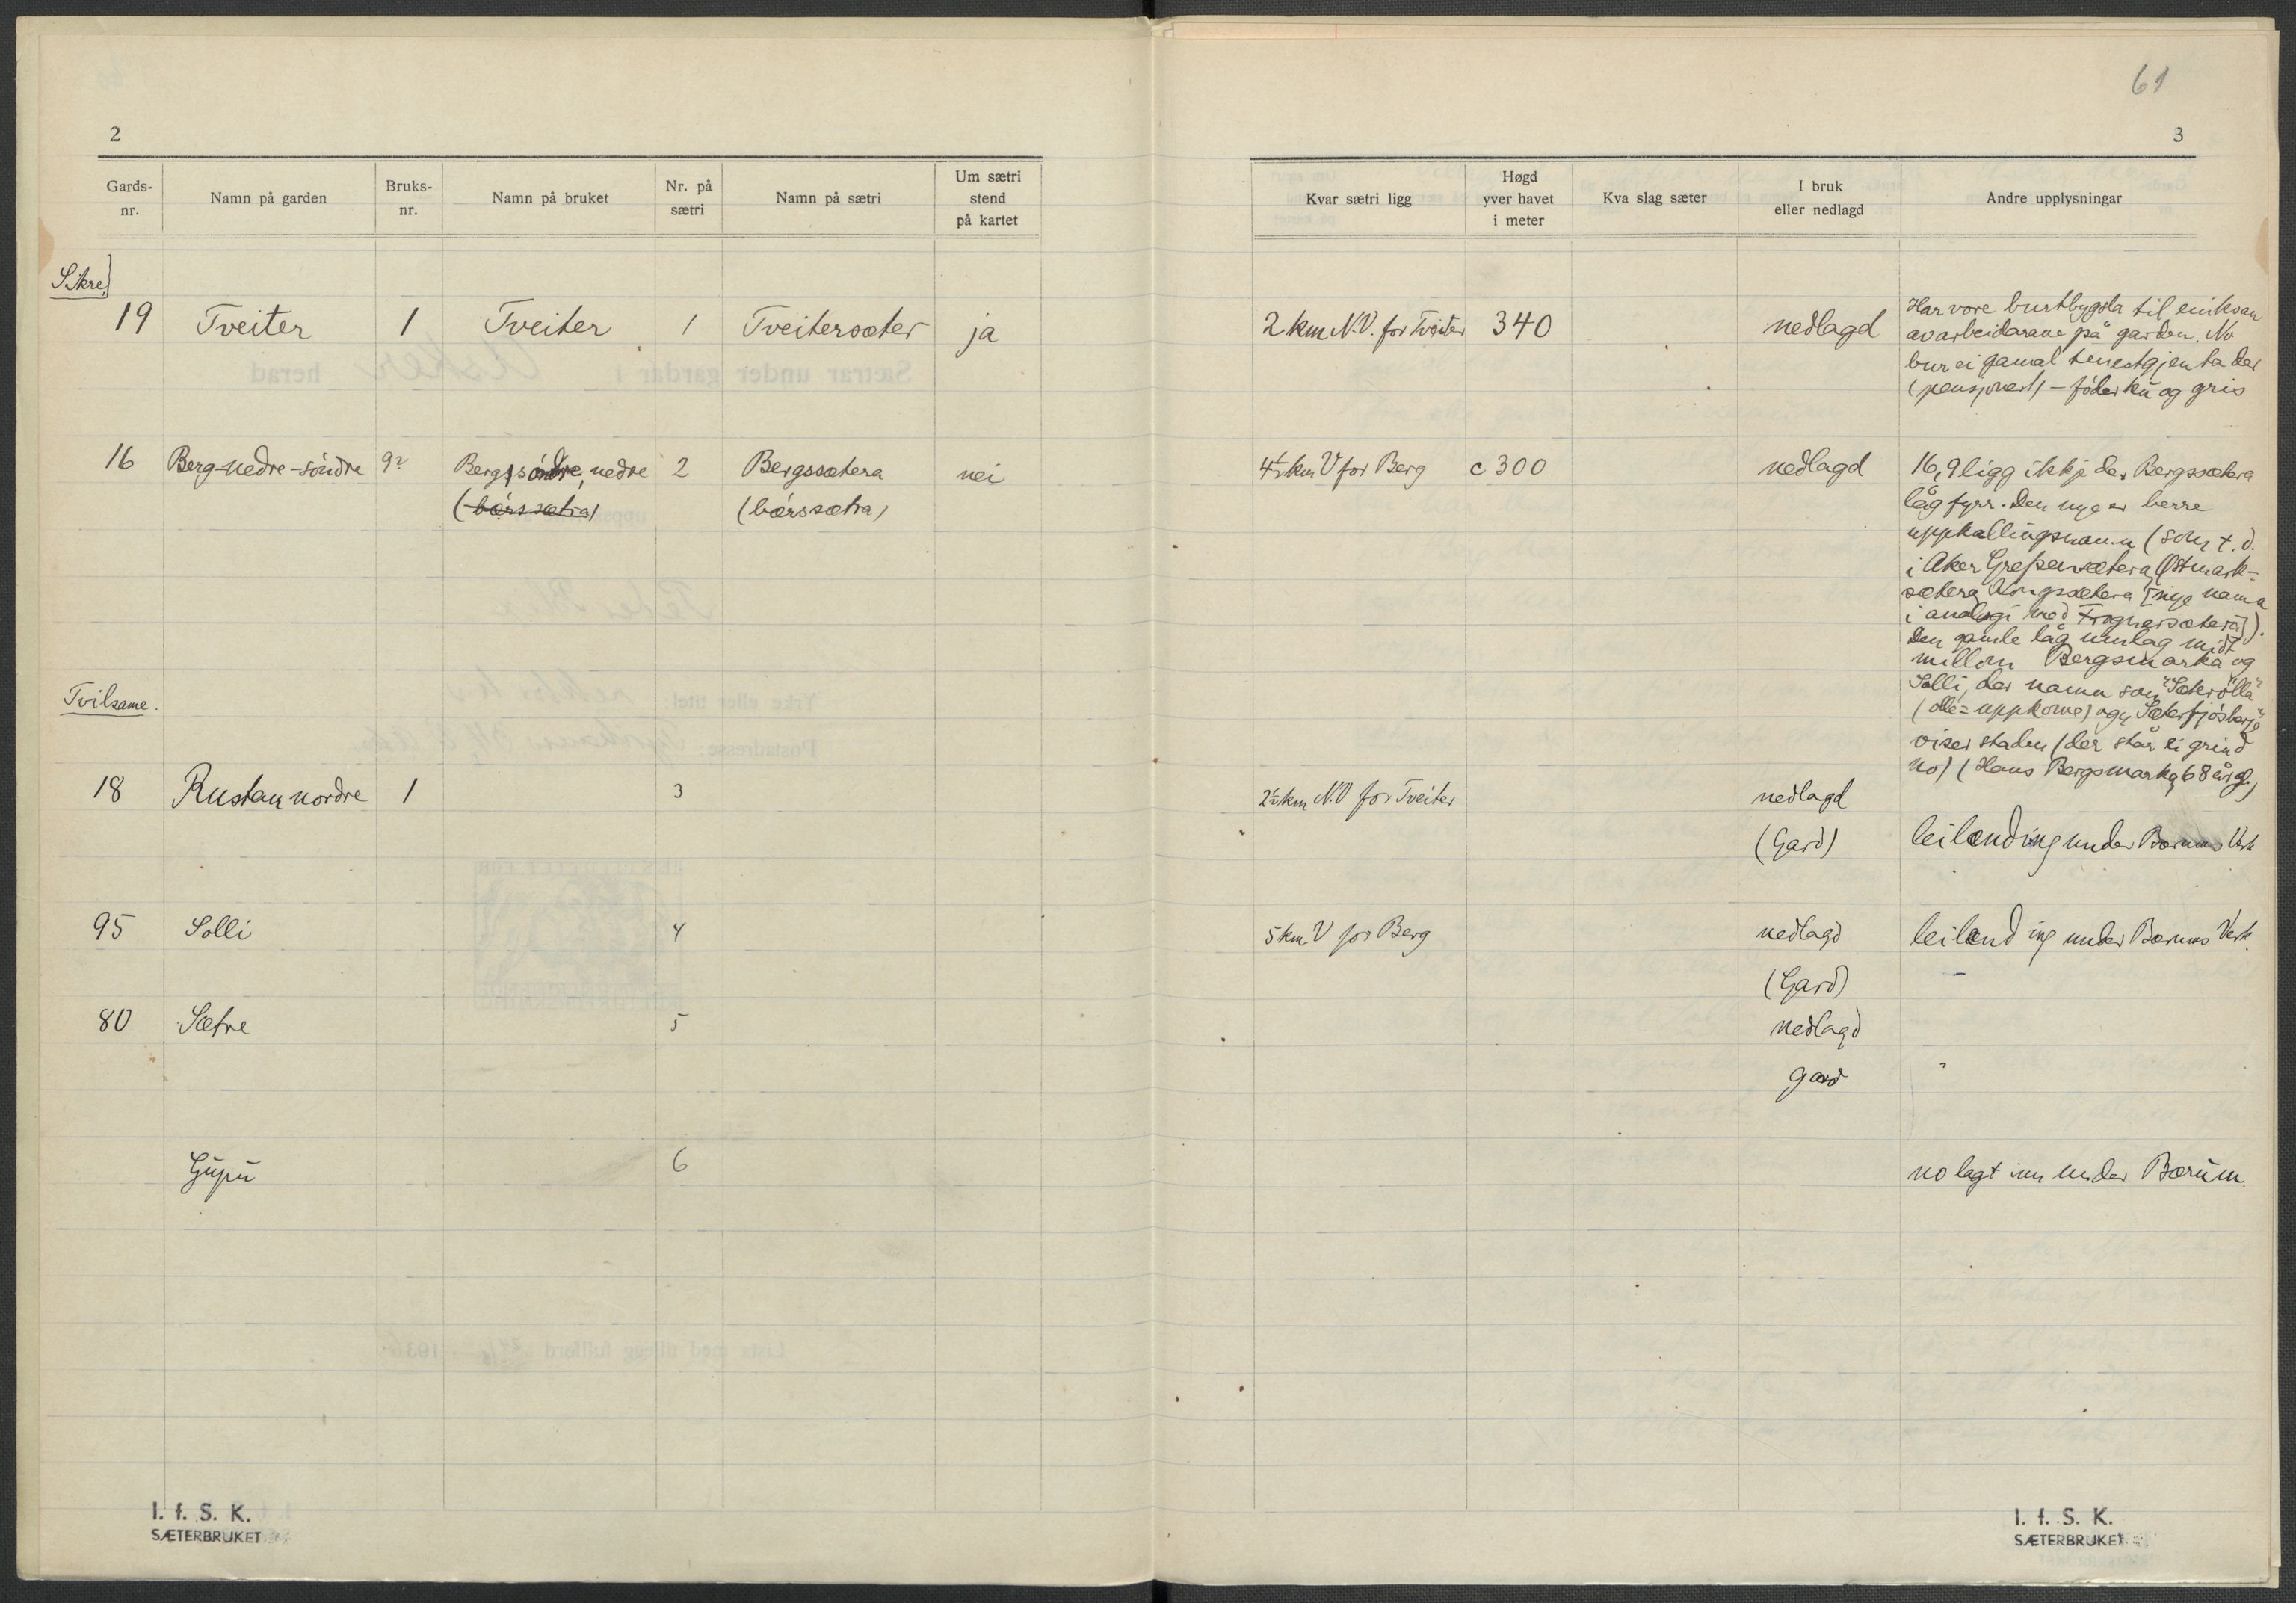 61
2
3
Gards-
nr.
Namn på garden
Bruks-
nr.
Namn på bruket
Nr. på
sætri
Namn på sætri
Um sætri
stend
på kartet
Kvar sætri ligg
Høgd
yver havet
i meter
Kva slag sæter
I bruk
eller nedlagd
Andre upplysningar
Sikre
19 Tveiter 1 Tveiter 1 Tveitersæter ja 2 km N.V. for Tveiter 340 nedlagd
Har vore burtbygsla til einkvan
av arbeidarane på garden. No
bur ei gamal tenestgjenta der
(pensjonert) – föder ku og gris
16 Berg-nedre-söndre 9? Berg söndre, nedre 2 Bergssætera nei 4½ km V for Berg c 300 nedlagd
(bærssætra) (bærssætra)
16,9 ligg ikkje der Bergssætera
låg fyrr. Den nye er berre
uppkallingsnamn (som t.d.
i Aker Grefsensætera, Østmark-
sætera, Kongssætera [nye namn
i analogi med Frognersætera]).
Den gamle låg umlag midt
millom Bergsmarka og
Solli, der namn som "Sæterölla"
(olle = uppkome) og "Sæterfjösberje"
viser staden (der står ei grind
no) (Hans Bergsmarka, 68 år gl.)
Tvilsame.
18 Rustan nordre 1 3 2½ km N.V for Tveiter nedlagd
(Gard) leilending under Bærums Verk
95 Solli 4 5 km V for Berg nedlagd leilending under Bærums Verk.
(Gard) –
80 Sætre 5 nedlagd
gard "
Gupu 6 no lagt inn under Bærum.
I. f. S. K.
SÆTERBRUKET
I. f. S. K.
SÆTERBRUKET